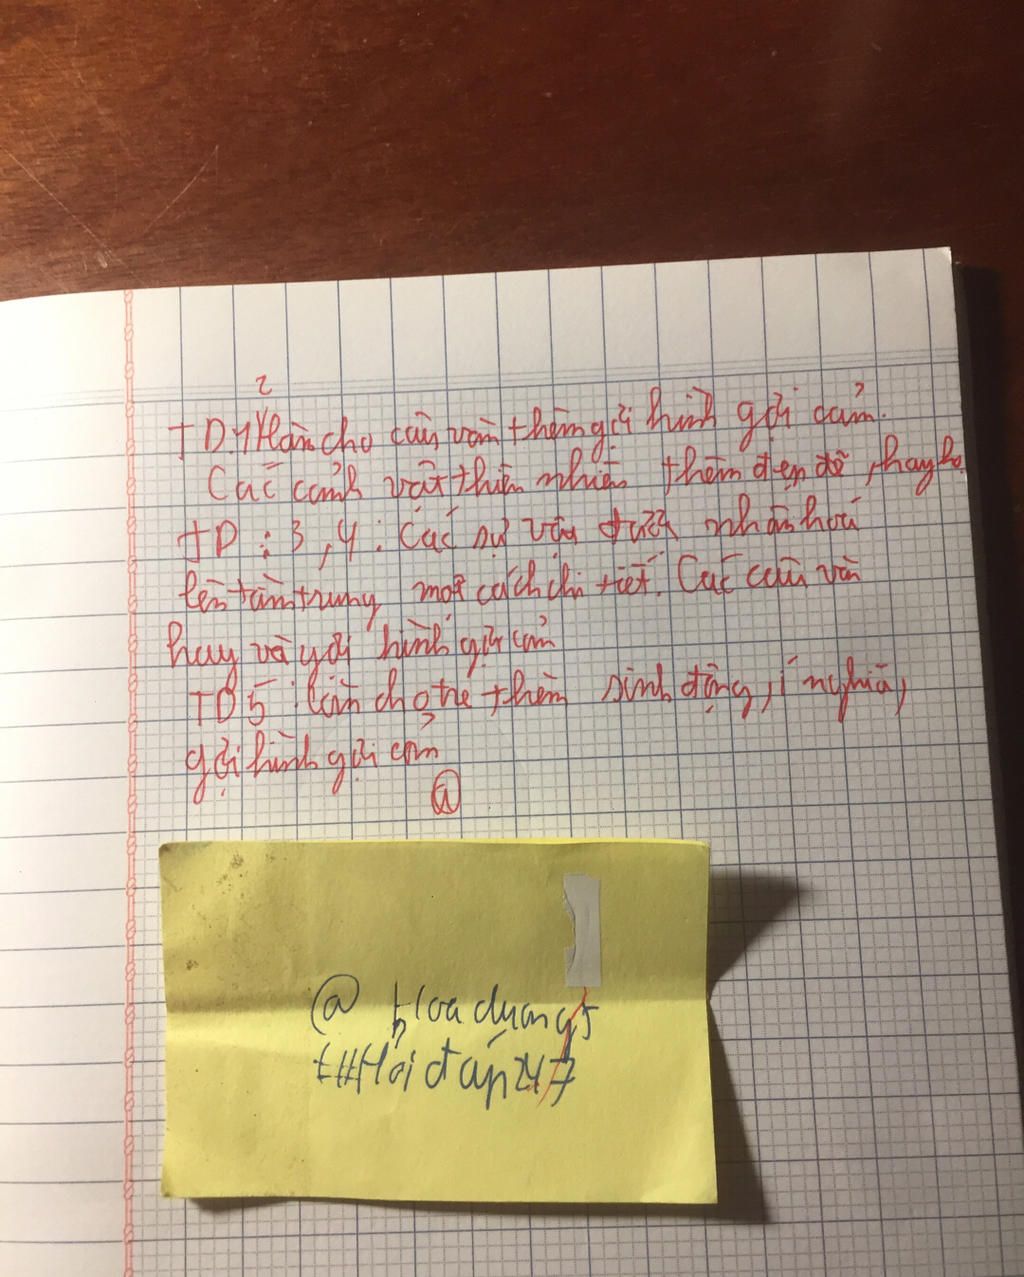 2
TD.1 làm cho câu văn thêm gợi hình gợi cảm.
Các cảnh vật thiên nhiên thêm đẹp đẽ, hay họ
TD : 3, 4 : Các sự vật được nhân hoá
lên tâm trung một cách chi tiết. Các câu văn
hay và gợi hình gợi cảm
TD 5 : làm cho thêm sinh động, í nghĩa,
gợi hình gợi cảm
@
@ Hoa duong5
#Hỏi đáp247